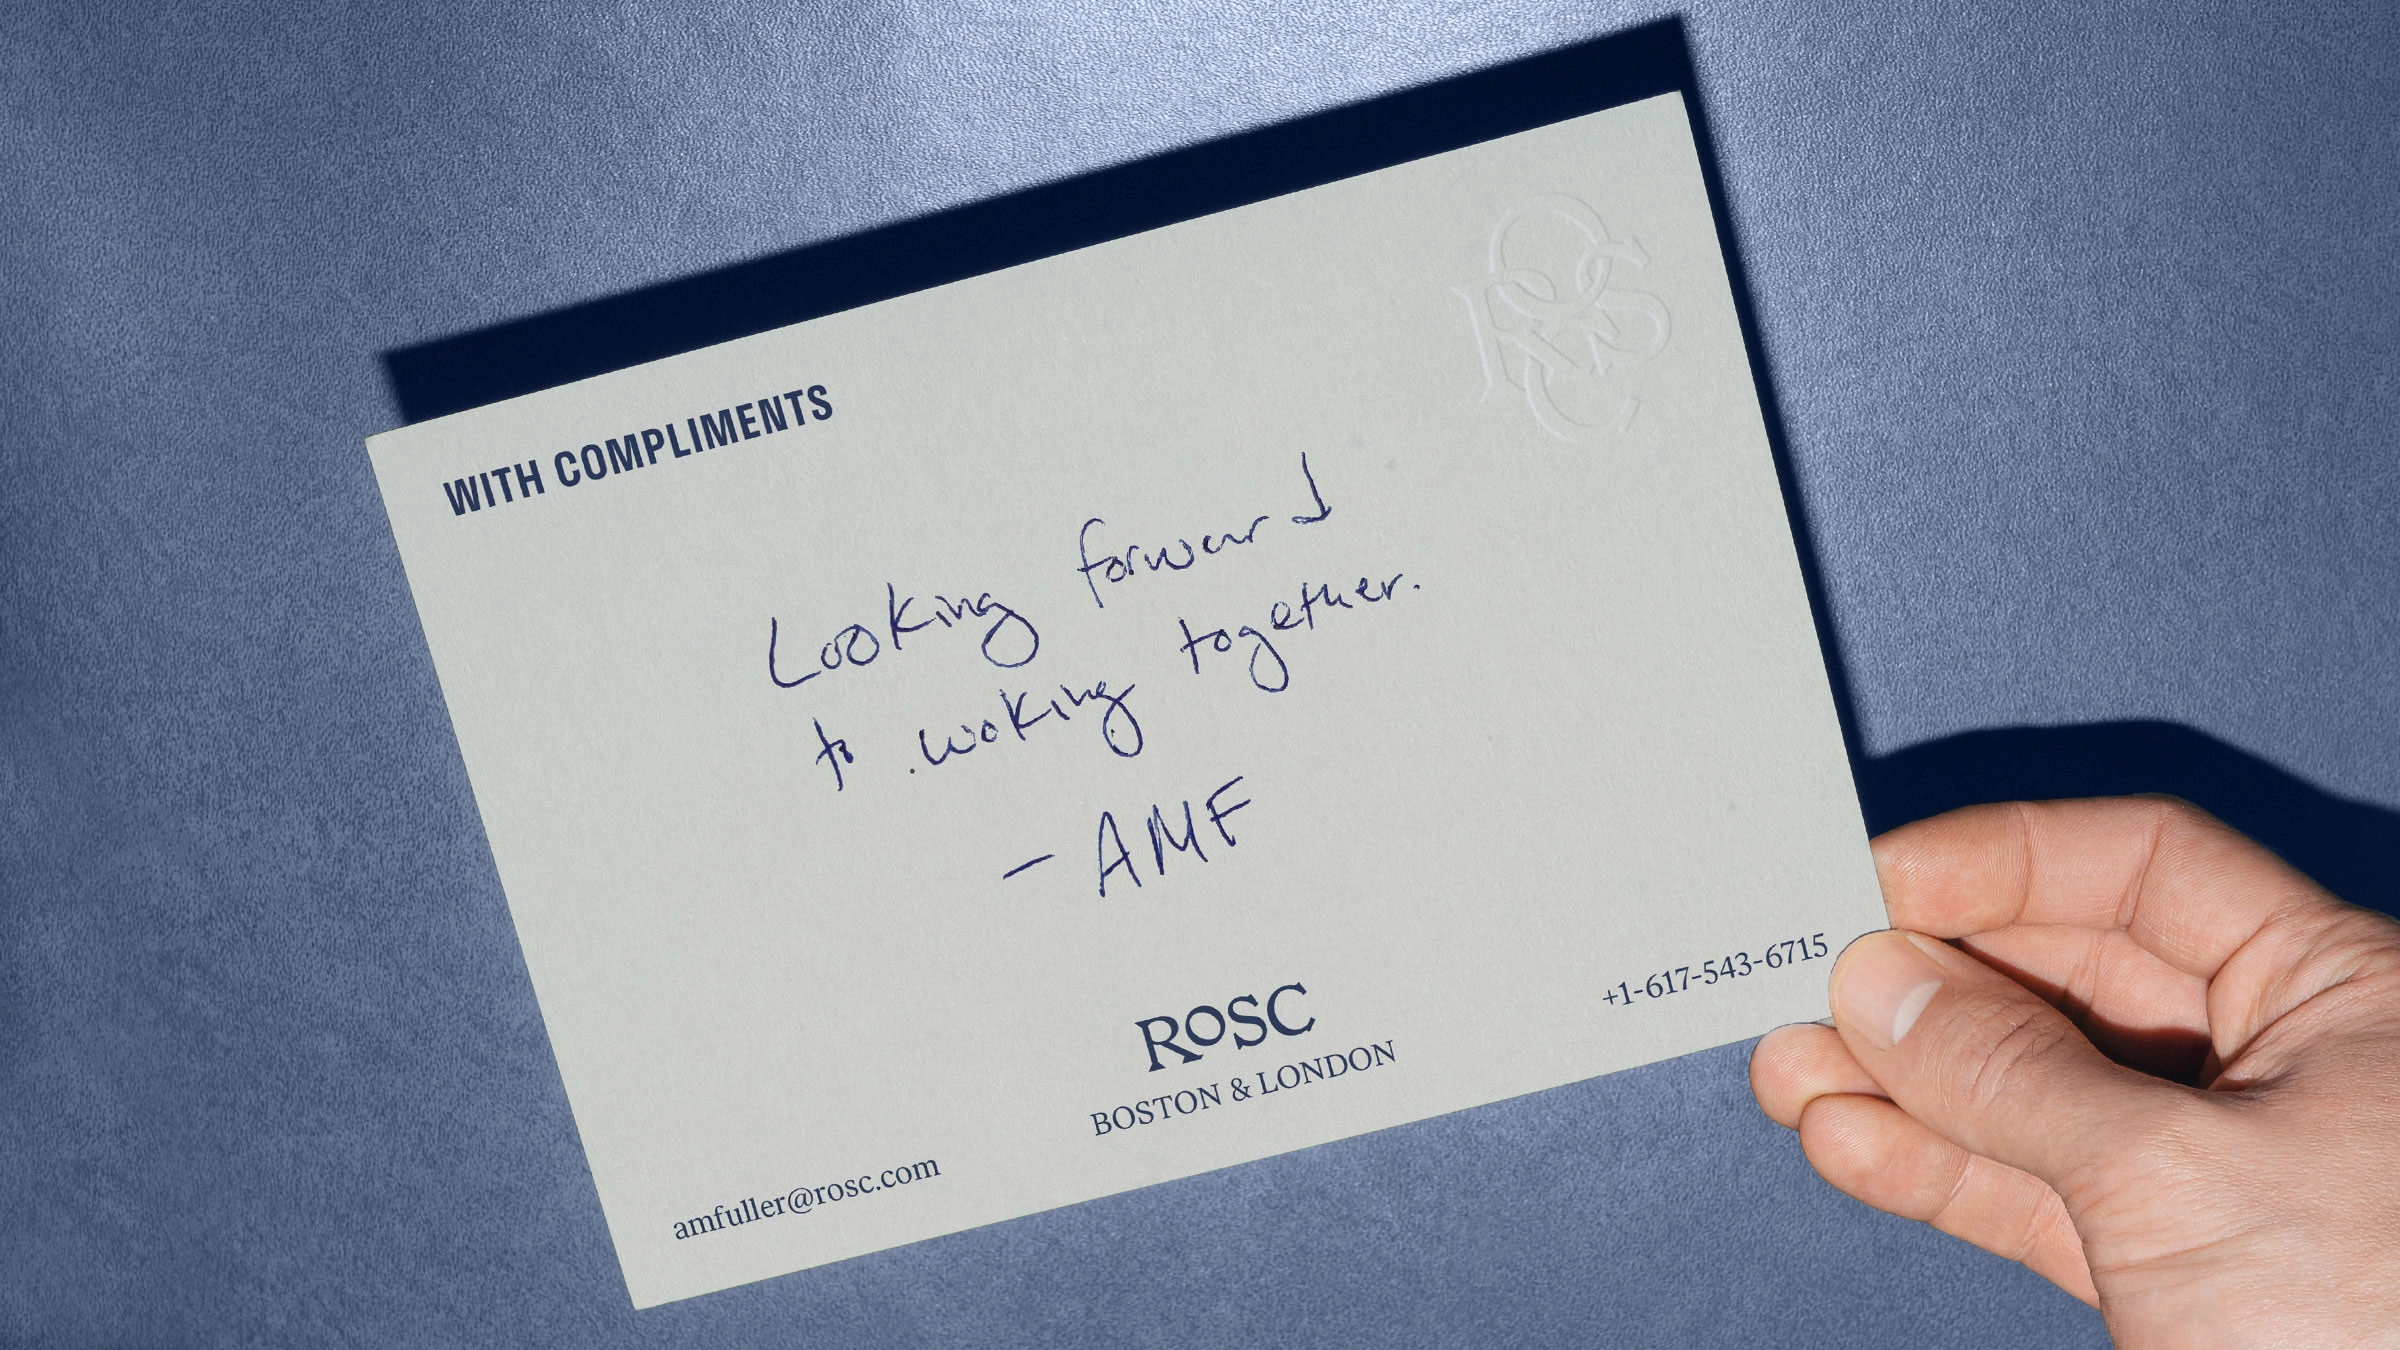 WITH COMPLIMENTS
Looking forward
to woking together.
- AMF
ROSC
BOSTON & LONDON
amfuller@rosc.com
+1-617-543-6715